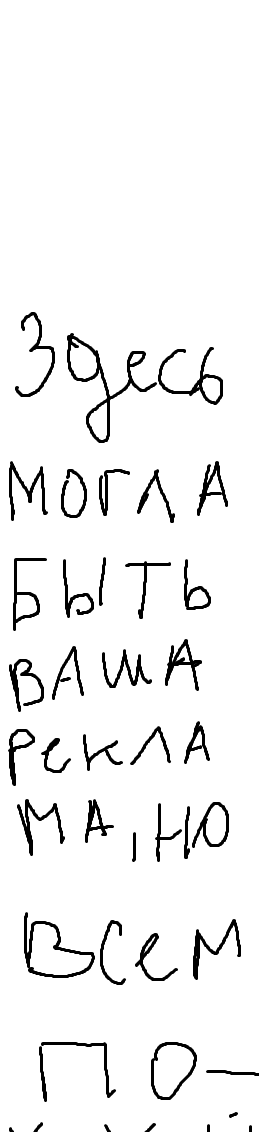 Здесь
МОГЛА
БЫТЬ
ВАША
Рекла
МА, НО
Всем
ПО-